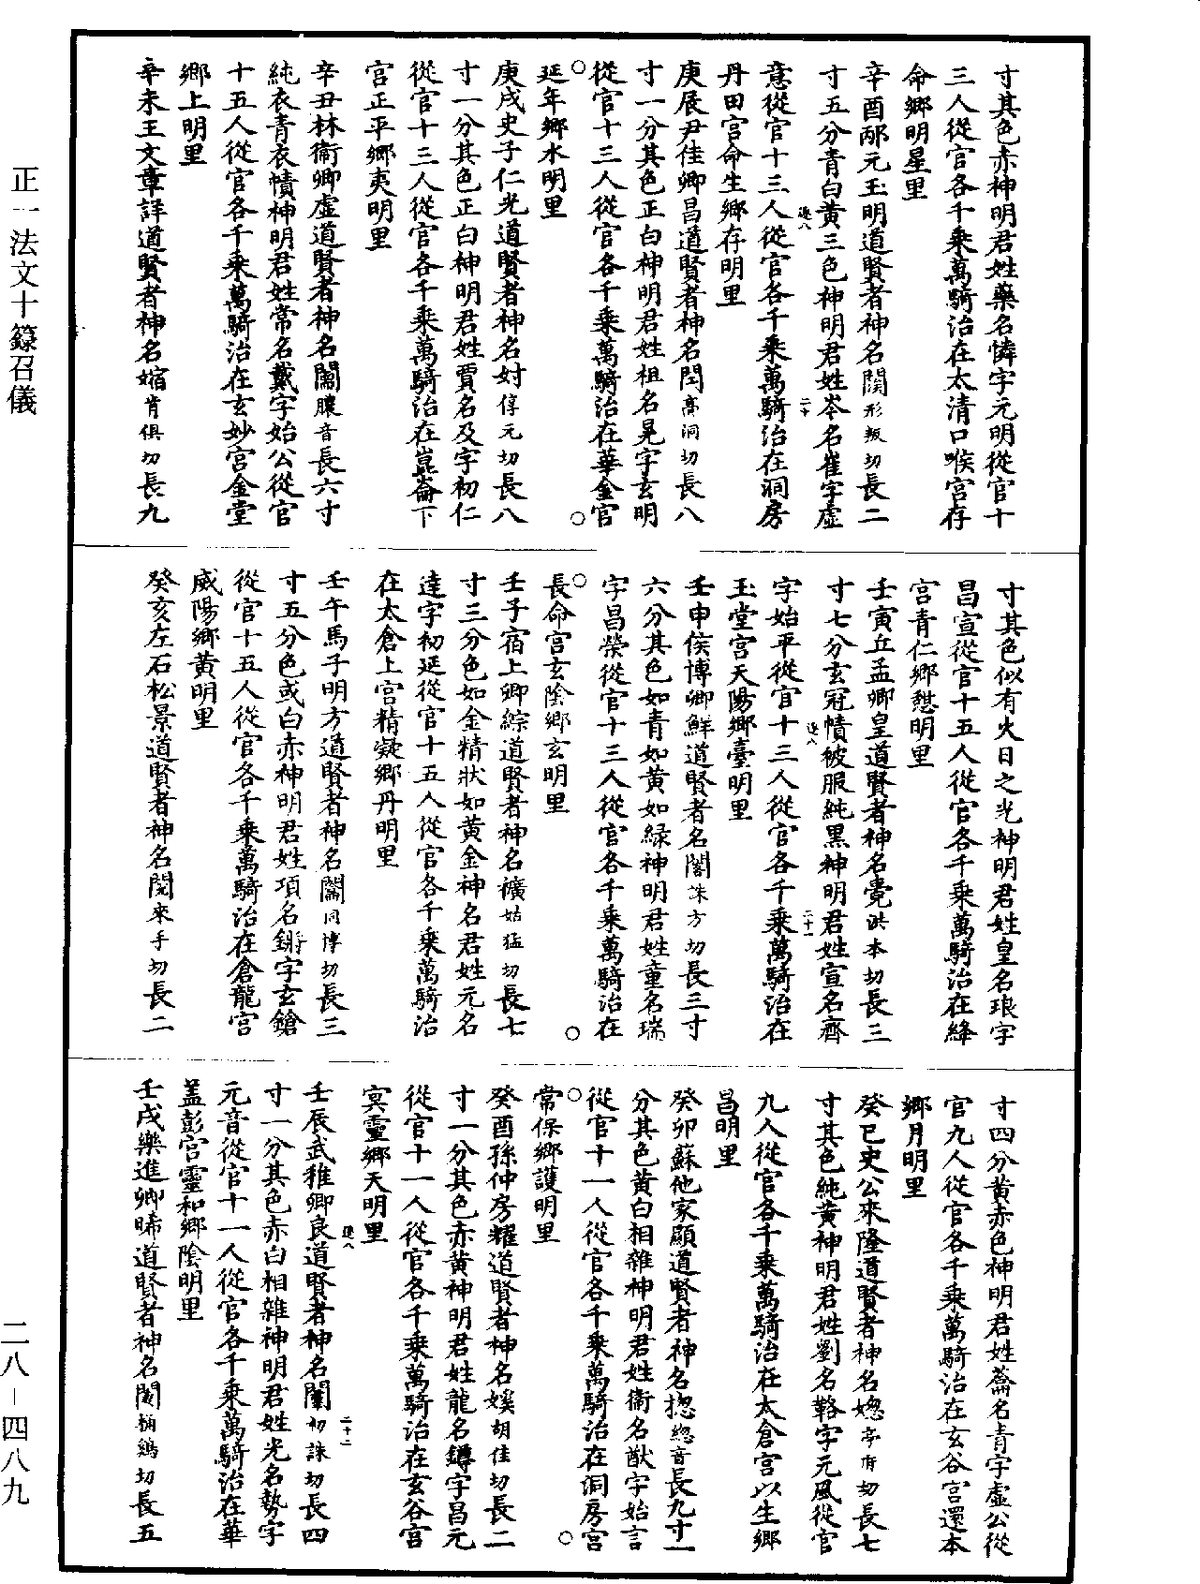 寸其色赤神明君姓藥名憐字元明從官十
三人從官各千乘萬騎治在太清口喉宮存
命鄉明星里
辛酉邴元玉明道賢者神名闋形叛切長二
寸五分青白黃三色神明君姓岑名崔字虛
意從官十三人從官各千乘萬騎治在洞房
丹田宮命生鄉存明里
庚辰尹佳卿昌道賢者神名閅高洞切長八
寸一分其色正白神明君姓祖名晃字玄明
從官十三人從官各千乘萬騎治在華金官
延年鄉水明里
庚戌史子仁光道賢者神名紂俘元切長八
寸一分其色正白神明君姓賈名及字初仁
從官十三人從官各千乘萬騎治在崑崙下
宮正平鄉夷明里
辛丑林衛卿虛道賢者神名臊音長六寸
純衣青衣幘神明君姓常名戴字始公從官
十五人從官各千乘萬騎治在玄妙宮金堂
鄉上明里
辛未王文章詳道賢者神名婠肯俱切長九
寸其色似有火日之光神明君姓皇名琅字
昌宣從官十五人從官各千乘萬騎治在絳
宮青仁鄉憇明里
壬寅丘孟卿皇道賢者神名洪本切長三
寸七分玄冠幘被服純黑神明君姓宣名齊
字始平從官十三人從官各千乘萬騎治在
玉堂宮天陽鄉臺明里
壬申侯博卿鮮道賢者名闍誅方切長三寸
六分其色如青如黃如綠神明君姓童名瑞
字昌榮從官十三人從官各千乘萬騎治在
長命宮玄陰鄉玄明里
壬子宿上卿綜道賢者神名穬姑猛切長七
寸三分色如金精狀如黃金神名君姓元名
達字初延從官十五人從官各千乘萬騎治
在太倉上宮精凝鄉丹明里
壬午馬子明方道賢者神名同博切長三
寸五分色或白赤神明君姓項名鏘字玄鎗
從官十五人從官各千乘萬騎治在倉龍宮
威陽鄉黃明里
癸亥左石松景道賢者神名閔來手切長二
寸四分黃赤色神明君姓龠名青字虛公從
官九人從官各千乘萬騎治在玄谷宮還本
鄉月明里
癸巳史公來隆道賢者神名媳亭有切長七
寸其色純黃神明君姓劉名輅字元風從官
九人從官各千乘萬騎治在太倉宮以生鄉
昌明里
癸卯蘇他家顯道賢者神名揔總音長九寸一
分其色黃白相雜神明君姓衛名猷字始言
從官十一人從官各千乘萬騎治在洞房宮
常保鄉護明里
癸酉孫仲房耀道賢者神名嫨胡佳切長二
寸一分其色赤黃神明君姓龍名鐏字昌元
從官十一人從官各千乘萬騎治在玄谷宮
冥靈鄉天明里
壬辰武稚卿良道賢者神名闉初誅切長四
寸一分其色赤白相雜神明君姓光名勢字
元音從官十一人從官各千乘萬騎治在華
蓋彭宮靈和鄉陰明里
壬戌樂進卿晞道賢者神名切長五
逐八 二十
逐八 二十一
逐八 二十二
正一法文十籙召儀
二八－四八九